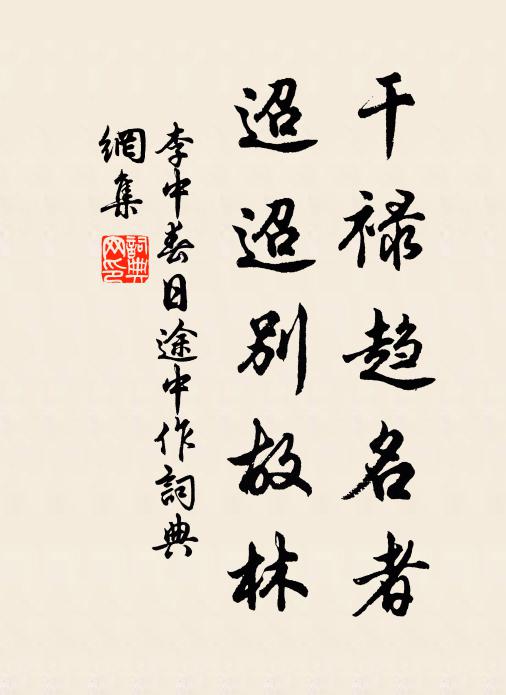 干禄趋名者
迢迢别故林
李中春日途中作詞典
網集
詞典
网印